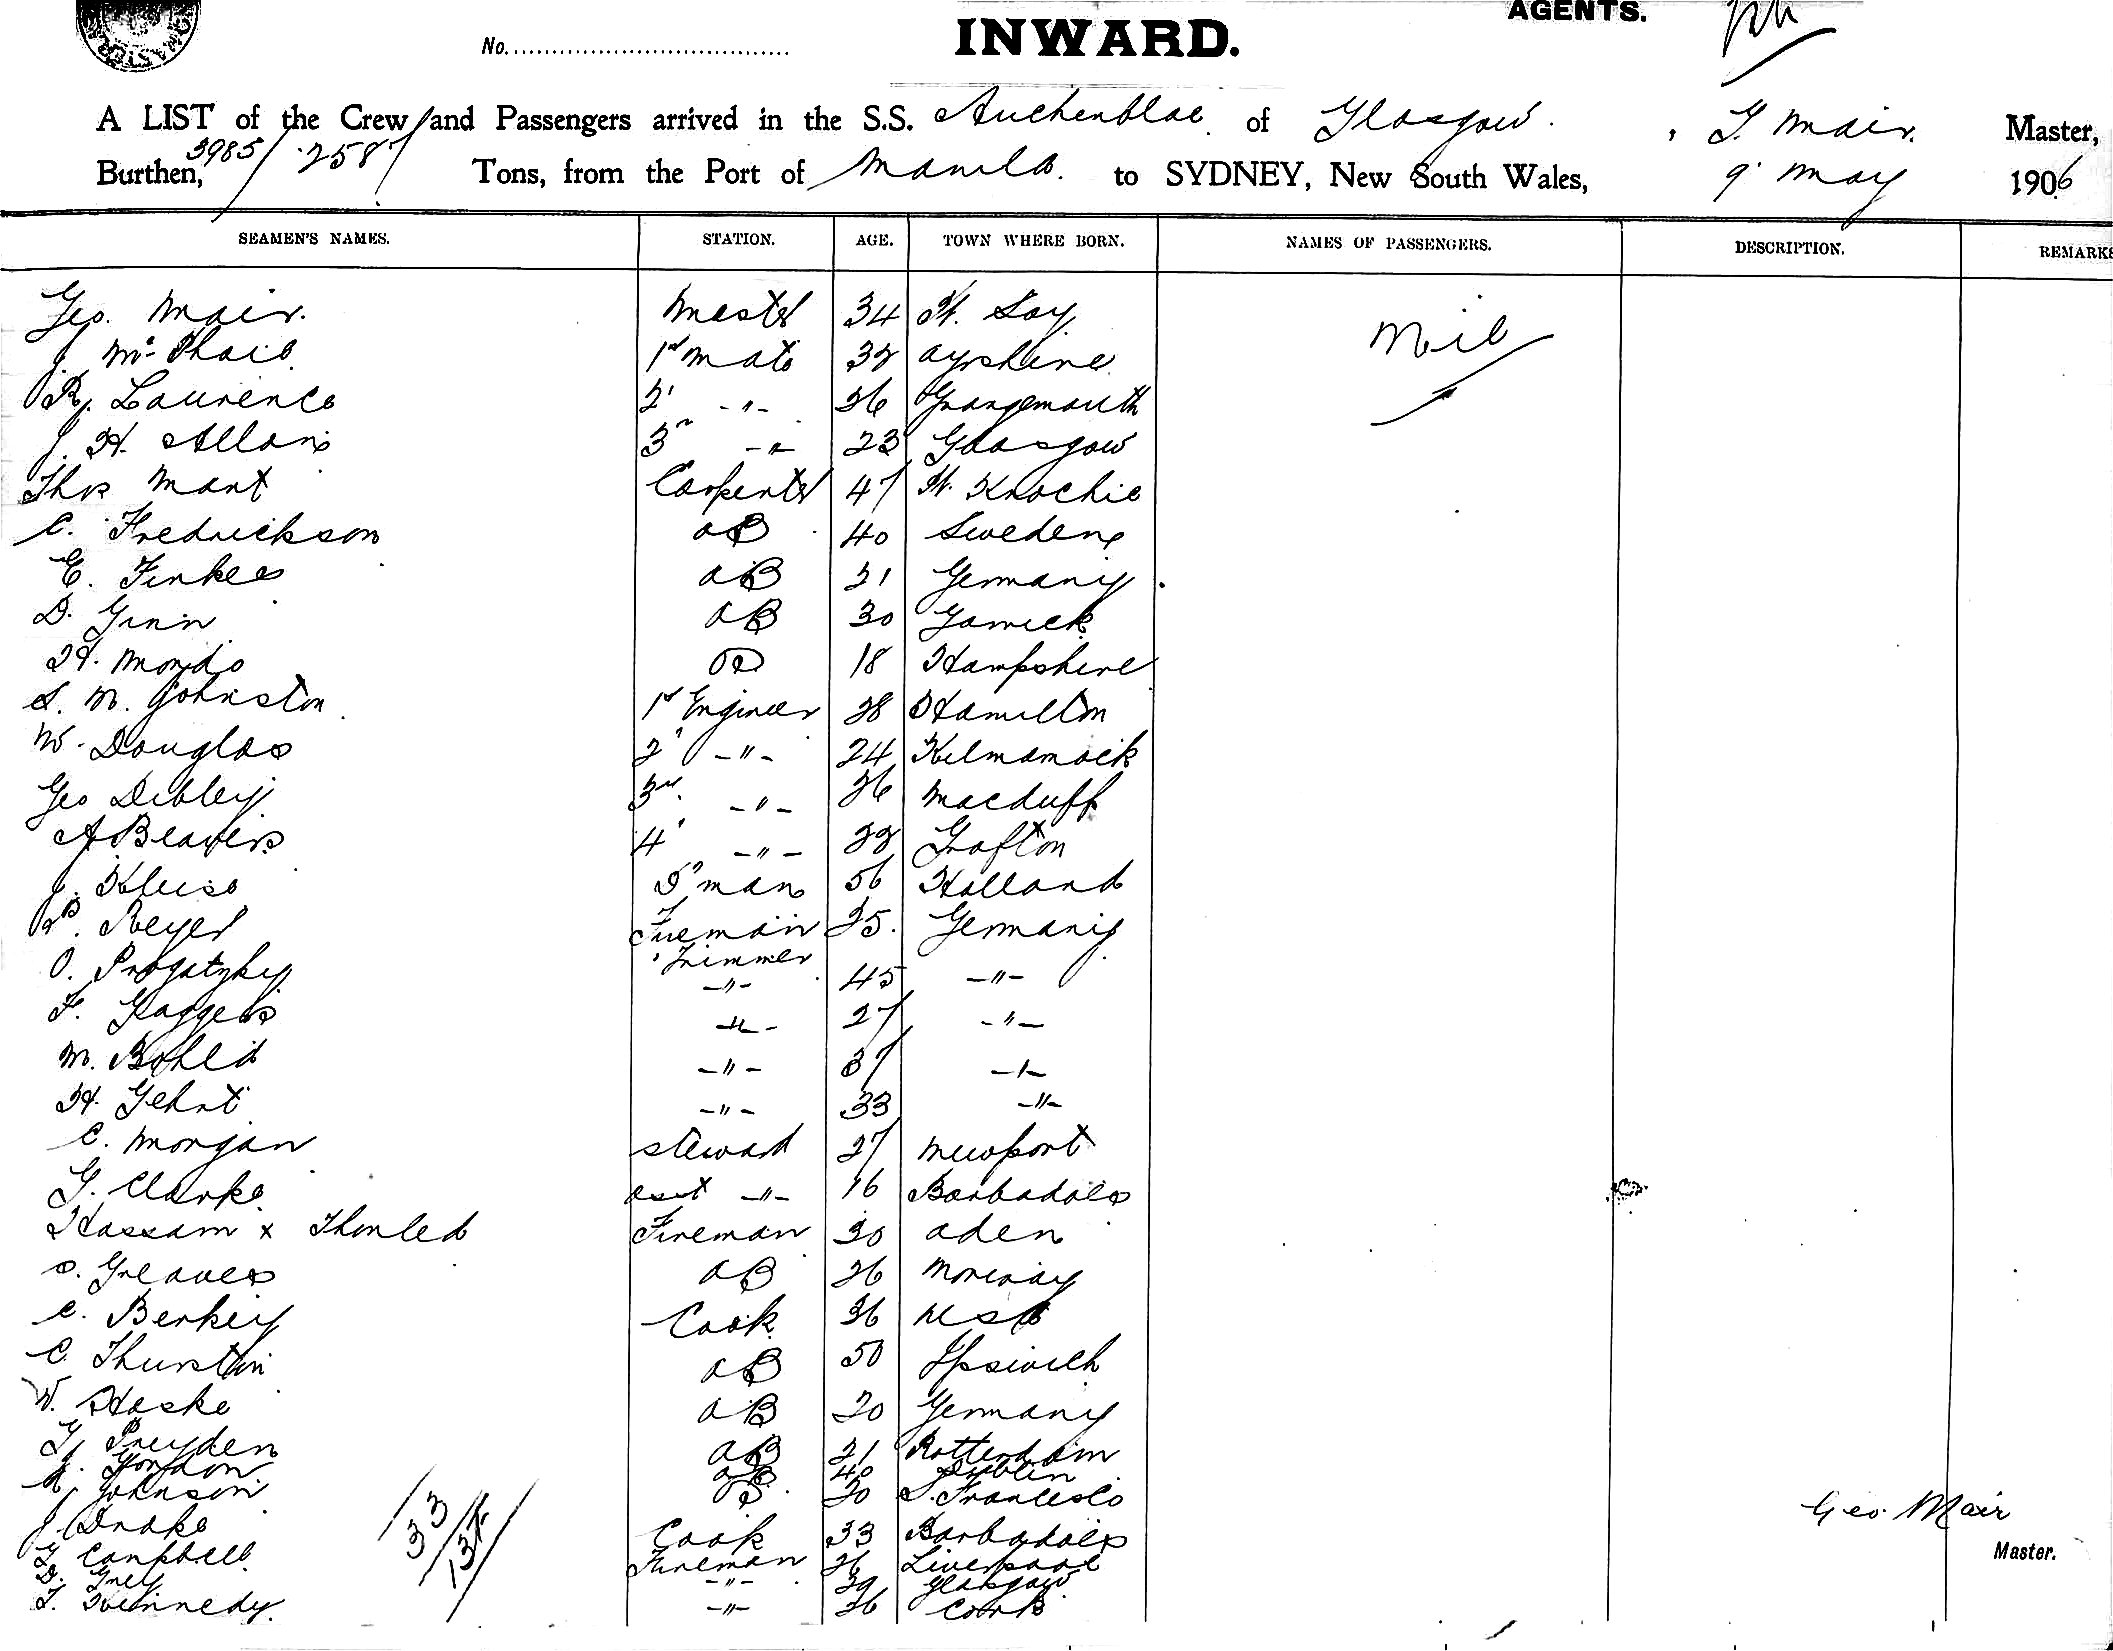 AGENTS.
No.
INWARD.
A LIST of the Crew and Passengers arrived in the S.S. Auchenblae of Glasgow. , G. Mair. Master,
Burthen, 3985/2587 Tons, from the Port of Manila. to SYDNEY, New South Wales, 9 May 1906
SEAMEN'S NAMES. STATION. AGE. TOWN WHERE BORN. NAMES OF PASSENGERS. DESCRIPTION. REMARKS
Geo. Mair. Master 34 Nil
J. McPhail 1st Mate Ayrshire
R. Laurence 2 -"- 26 Grangemouth
J. H. Allan 3rd -"- 23 Glasgow
Thos Mant Carpenter 47
C. Fredrickson AB 40 Sweden
E. AB 21 Germany
D. Ginn AB 30
H. 18 Hampshire
S. M. Johnston 1st Engineer 28 Hamilton
W. Douglas 2 -"- 24 Kilmarnock
Geo Dibley 3rd -"- 26 Macduff
A Beavers 4 -"- Grafton
J. D'man 56 Holland
Fireman 25. Germany
Trimmer
O. -"- 45 -"-
F. -"- 27 -"-
M. -"- 37 -"-
H. Gehrt -"- 33 -"-
C. Morgan Steward 27 Newport
G. Clarke asst -"- 16 Barbadoes
Hassam x Fireman 30 Aden
O. Greaves AB 26 Norway
C. Berkey Cook 36 USA
C. Thurston AB 50 Ipswich
W. Haske AB 20 Germany
G. AB 21 Rotterdam
Gordon AB 40 Dublin
Johnson OS 20 S. Francisco
J. Drake Cook 33 Barbadoes
Campbell Fireman 26 Liverpool
D. Grey -"- 29 Glasgow
T. Kennedy. -"- 26 Cork
33
Geo. Mair
Master.